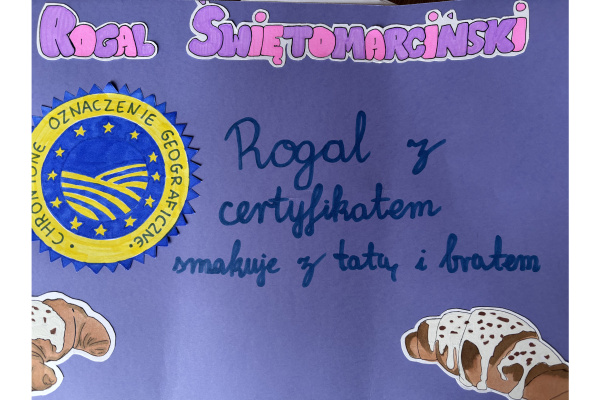 ROGAL ŚWIĘTOMARCIŃSKI
• CHRONIONE OZNACZENIE GEOGRAFICZNE •
Rogal z
certyfikatem
smakuje z tatą i bratem